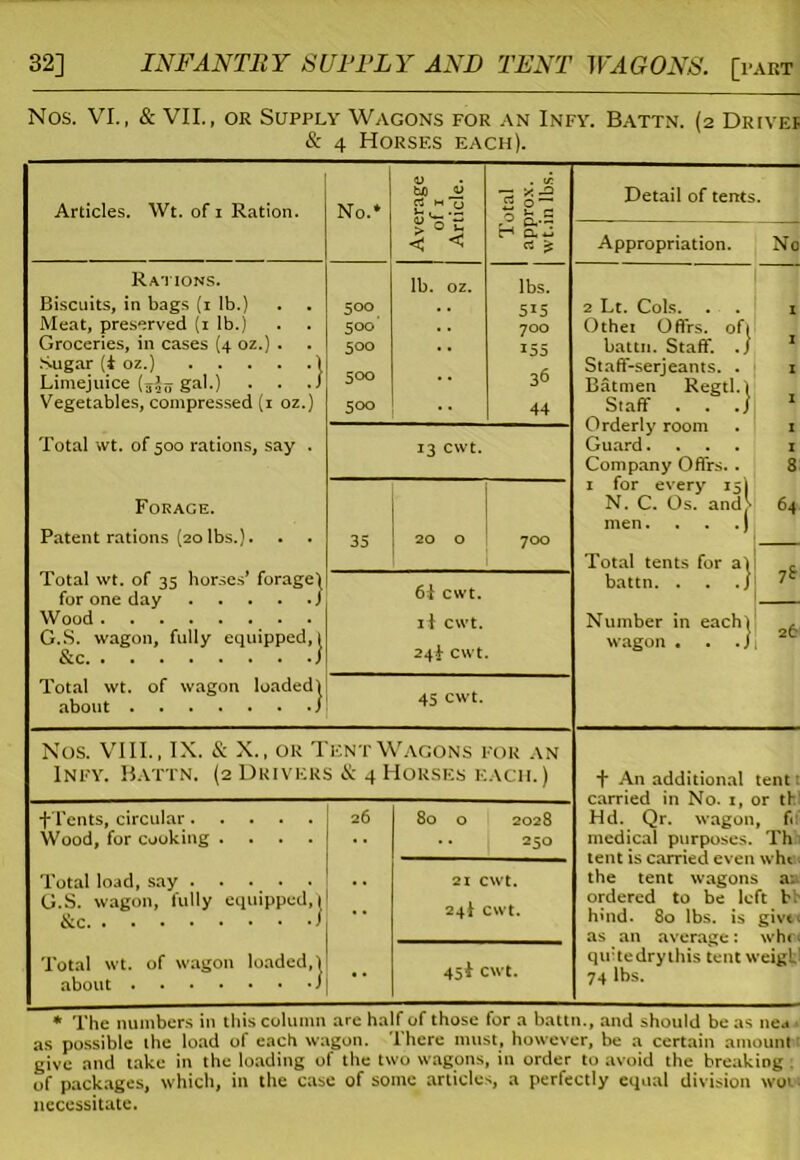 32] INFANTRY SUPPLY AND TENT WAGONS. [PART
Nos. VI., & VII., OR SUPPLY WAGONS FOR AN INFY. BATTN. (2 DRIVER
& 4 HORSES EACH).
Articles. Wt. of 1 Ration. No.* Average of 1 Article. Total approx. wt.in lbs.
RATIONS. lb. oz. lbs.
Biscuits, in bags (1 lb.) . . 500 .. 515
Meat, preserved (1 lb.) . . 500 .. 700
Groceries, in cases (4 oz.) . . 500 .. 155
Sugar (¼ oz.) . . . . . }
Limejuice (1/320 gal.) . . . } 500 .. 36
Vegetables, compressed (1 oz.) 500 .. 44
Total wt. of 500 rations, say . 13 cwt.
FORAGE.
Patent rations (20 lbs.). . . 35 20 0 700
Total wt. of 35 horses' forage }
for one day . . . . . } 6¼ cwt.
Wood . . . . . . . . 1¼ cwt.
G.S. wagon, fully equipped, }
&c. . . . . . . . . } 24¼ cwt.
Total wt. of wagon loaded }
about . . . . . . . } 45 cwt.
Detail of tents.
Appropriation. No
2 Lt. Cols. . . 1
Other Offrs. of }
battn. Staff. . } 1
Staff-serjeants. . 1
Bâtmen Regtl. }
Staff . . . } 1
Orderly room . 1
Guard. . . . 1
Company Offrs. . 8
1 for every 15 }
N. C. Os. and } 64
men. . . . }
Total tents for a }
battn. . . . } 78
Number in each }
wagon . . . } 26
Nos. VIII., IX. & X., OR TENT WAGONS FOR AN
INFY. BATTN. (2 DRIVERS & 4 HORSES EACH.)
†Tents, circular . . . . . 26 80 0 2028
Wood, for cooking . . . . .. .. 250
Total load, say . . . . . .. 21 cwt.
G.S. wagon, fully equipped, }
&c. . . . . . . . . } .. 24¼ cwt.
Total wt. of wagon loaded, }
about . . . . . . . } .. 45¼ cwt.
† An additional tent
carried in No. 1, or th
Hd. Qr. wagon, f
medical purposes. Th
tent is carried even whe
the tent wagons a
ordered to be left b
hind. 80 lbs. is give
as an average: whe
quite dry this tent weigh
74 lbs.
* The numbers in this column are half of those for a battn., and should be as nea
as possible the load of each wagon. There must, however, be a certain amount
give and take in the loading of the two wagons, in order to avoid the breaking
of packages, which, in the case of some articles, a perfectly equal division wou
necessitate.